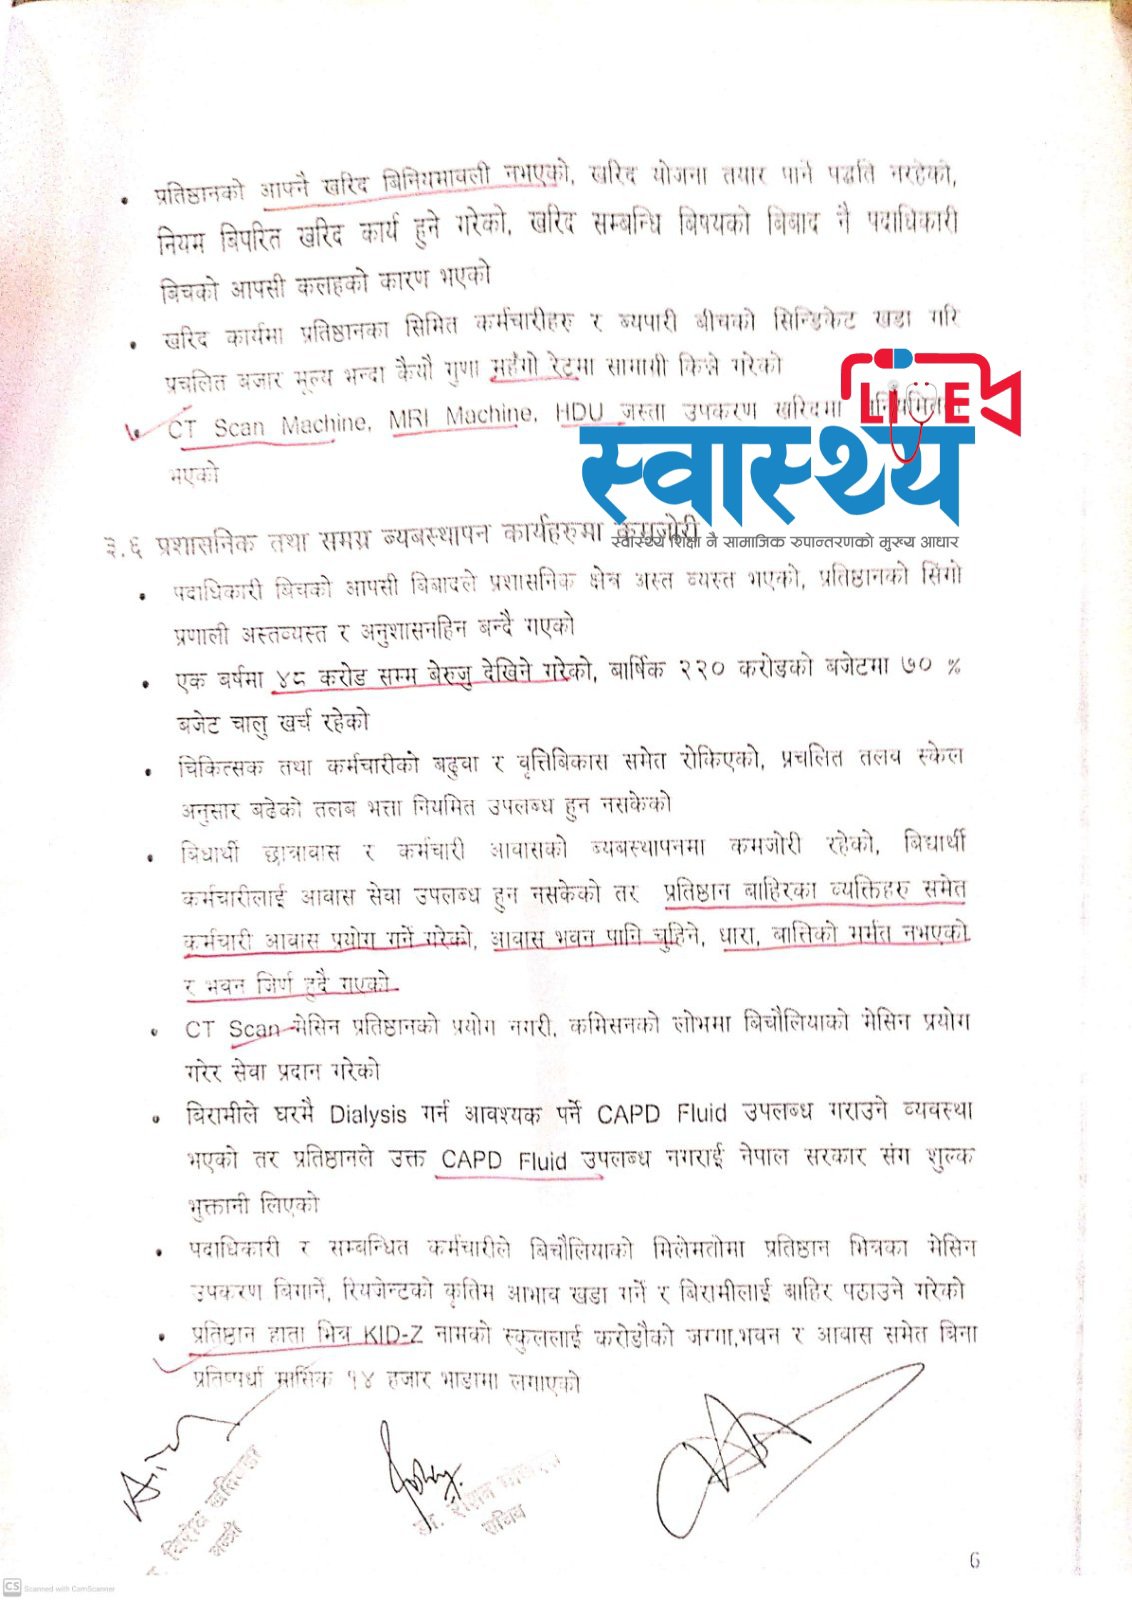 • प्रतिष्ठानको आफ्नै खरिद बिनियमावली नभएको, खरिद योजना तयार पार्ने पद्धति नरहेको,
नियम बिपरित खरिद कार्य हुने गरेको, खरिद सम्बन्धि बिषयको बिबाद नै पदाधिकारी
बिचको आपसी कलहको कारण भएको
• खरिद कार्यमा प्रतिष्ठानका सिमित कर्मचारीहरु र ब्यपारी बीचको सिन्डिकेट खडा गरि
प्रचलित बजार मूल्य भन्दा कैयौ गुणा महँगो रेटमा सामाग्री किन्ने गरेको
• CT Scan Machine, MRI Machine, HDU जस्ता उपकरण खरिदमा
भएको
LIVE
स्वास्थ्य
स्वास्थ्य शिक्षा नै सामाजिक रुपान्तरणको मुख्य आधार
३.६ प्रशासनिक तथा समग्र ब्यबस्थापन कार्यहरुमा कमजोरी
• पदाधिकारी बिचको आपसी बिबादले प्रशासनिक क्षेत्र अस्त ब्यस्त भएको, प्रतिष्ठानको सिंगो
प्रणाली अस्तव्यस्त र अनुशासनहिन बन्दै गएको
• एक बर्षमा ४८ करोड सम्म बेरुजु देखिने गरेको, बार्षिक २२० करोडको बजेटमा ७० %
बजेट चालु खर्च रहेको
• चिकित्सक तथा कर्मचारीको बढुवा र वृत्तिबिकास समेत रोकिएको, प्रचलित तलव स्केल
अनुसार बढेको तलब भत्ता नियमित उपलब्ध हुन नसकेको
• बिधार्थी छात्रावास र कर्मचारी आवासको ब्यबस्थापनमा कमजोरी रहेको, बिद्यार्थी
कर्मचारीलाई आवास सेवा उपलब्ध हुन नसकेको तर प्रतिष्ठान बाहिरका व्यक्तिहरु समेत
कर्मचारी आवास प्रयोग गर्ने गरेको, आवास भवन पानि चुहिने, धारा, बात्तिको मर्मत नभएको
र भवन जिर्ण हुदै गएको
• CT Scan मेसिन प्रतिष्ठानको प्रयोग नगरी, कमिसनको लोभमा बिचौलियाको मेसिन प्रयोग
गरेर सेवा प्रदान गरेको
• बिरामीले घरमै Dialysis गर्न आवश्यक पर्ने CAPD Fluid उपलब्ध गराउने व्यवस्था
भएको तर प्रतिष्ठानले उक्त CAPD Fluid उपलब्ध नगराई नेपाल सरकार संग शुल्क
भुक्तानी लिएको
• पदाधिकारी र सम्बन्धित कर्मचारीले बिचौलियाको मिलेमतोमा प्रतिष्ठान भित्रका मेसिन
उपकरण बिगार्ने, रियजेन्टको कृतिम आभाव खडा गर्ने र बिरामीलाई बाहिर पठाउने गरेको
• प्रतिष्ठान हाता भित्र KID-Z नामको स्कुललाई करोडौको जग्गा,भवन र आवास समेत बिना
प्रतिष्पर्धा मासिक १४ हजार भाडामा लगाएको
डा.
सचिव
6
CS Scanned with CamScanner